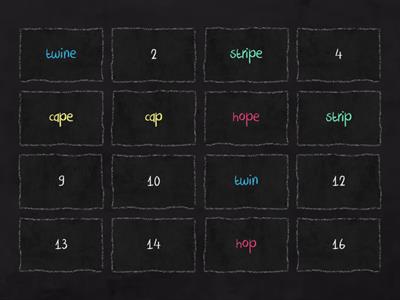 twine 2 stripe 4
cape cap hope strip
9 10 twin 12
13 14 hop 16